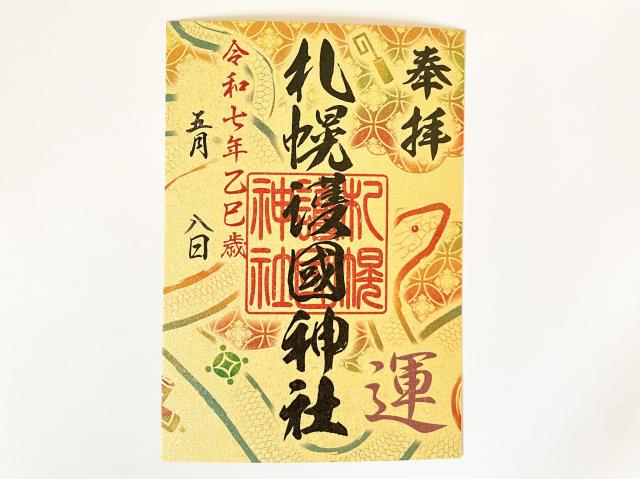 奉拝
札幌護國神社
札幌
護國
神社
運
令和七年乙巳歳
五月 八日